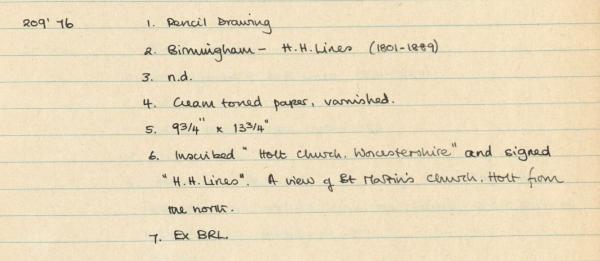 209' 76 1. Pencil Drawing
2. Birmingham - H.H. Lines (1801-1889)
3. n.d.
4. Cream toned paper, varnished.
5. 9 3/4" x 13 3/4"
6. Inscribed "Holt Church, Worcestershire" and signed
"H.H. Lines". A view of St Martin's Church, Holt from
the north.
7. Ex BRL.